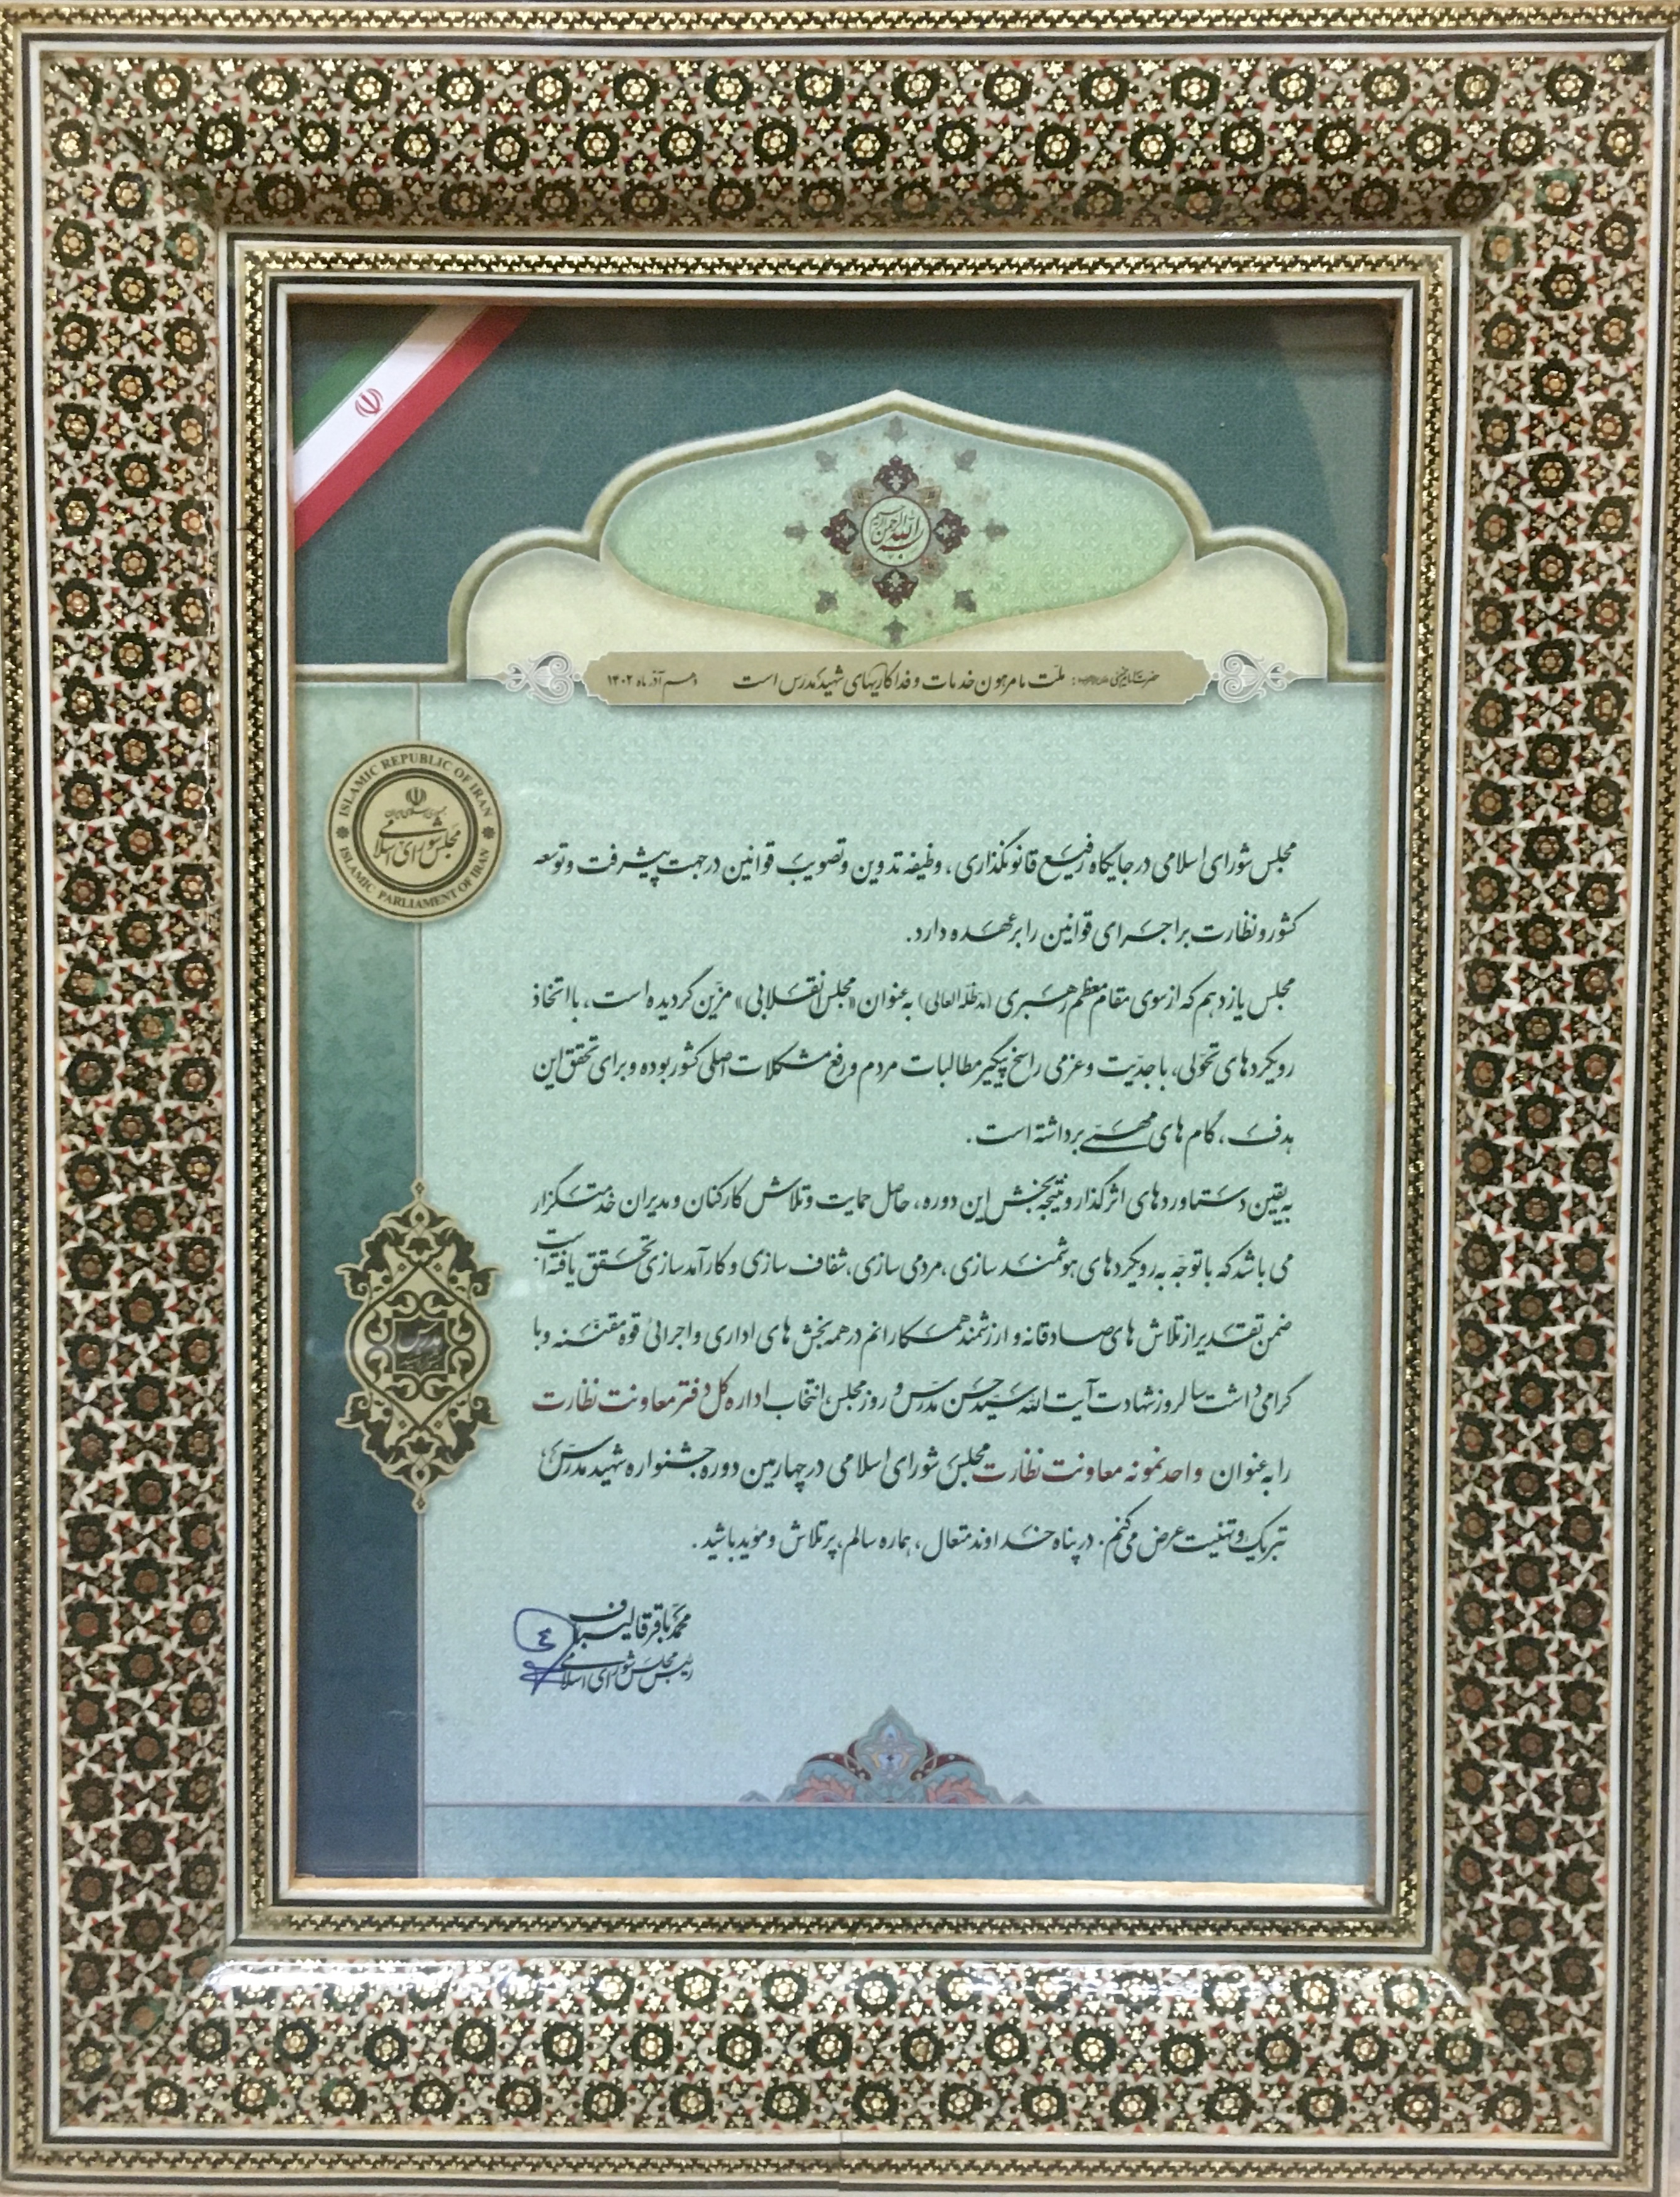 بسم الله الرحمن الرحیم
حضرت امام خمینی: ملّت ما مرهون خدمات و فداکاریهای شهید مدرس است دهم آذر ماه ۱۴۰۲
ISLAMIC REPUBLIC OF IRAN
جمهوری اسلامی ایران
مجلس شورای اسلامی
ISLAMIC PARLIAMENT OF IRAN
مجلس شورای اسلامی در جایگاه رفیع قانونگذاری، وظیفه تدوین و تصویب قوانین در جهت پیشرفت و توسعه
کشور و نظارت بر اجرای قوانین را بر عهده دارد.
مجلس یازدهم که از سوی مقام معظم رهبری (مدظله العالی) به عنوان «مجلس انقلابی» مزیّن گردیده است، با اتخاذ
رویکردهای تحوّلی، با جدیّت و عزمی راسخ پیگیر مطالبات مردم و رفع مشکلات اصلی کشور بوده و برای تحقق این
هدف، گام های مهمّی برداشته است.
به یقین دستاوردهای اثرگذار و نتیجه بخش این دوره، حاصل حمایت و تلاش کارکنان و مدیران خدمتگزار
می باشد که با توجّه به رویکردهای هوشمند سازی، مردمی سازی، شفاف سازی و کارآمد سازی تحقق یافته است
ضمن تقدیر از تلاش های صادقانه و ارزشمند همکارانم در همه بخش های اداری و اجرائی قوه مقننه و با
گرامی داشت سالروز شهادت آیت الله سید حسن مدرس و روز مجلس، انتخاب اداره کل دفتر معاونت نظارت
را به عنوان واحد نمونه معاونت نظارت مجلس شورای اسلامی در چهارمین دوره جشنواره شهید مدرس،
تبریک و تهنیت عرض می کنم. در پناه خداوند متعال، هماره سالم، پرتلاش و موید باشید.
مدرس
محمد باقر قالیباف
رئیس مجلس شورای اسلامی